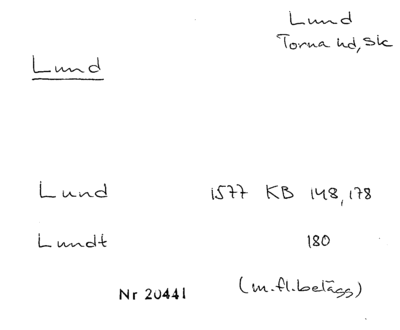 Lund
Torna hd, Sk
Lund
Lund 1577 KB 148, 178
Lundt 180
Nr 20441 (m.fl. belägg)